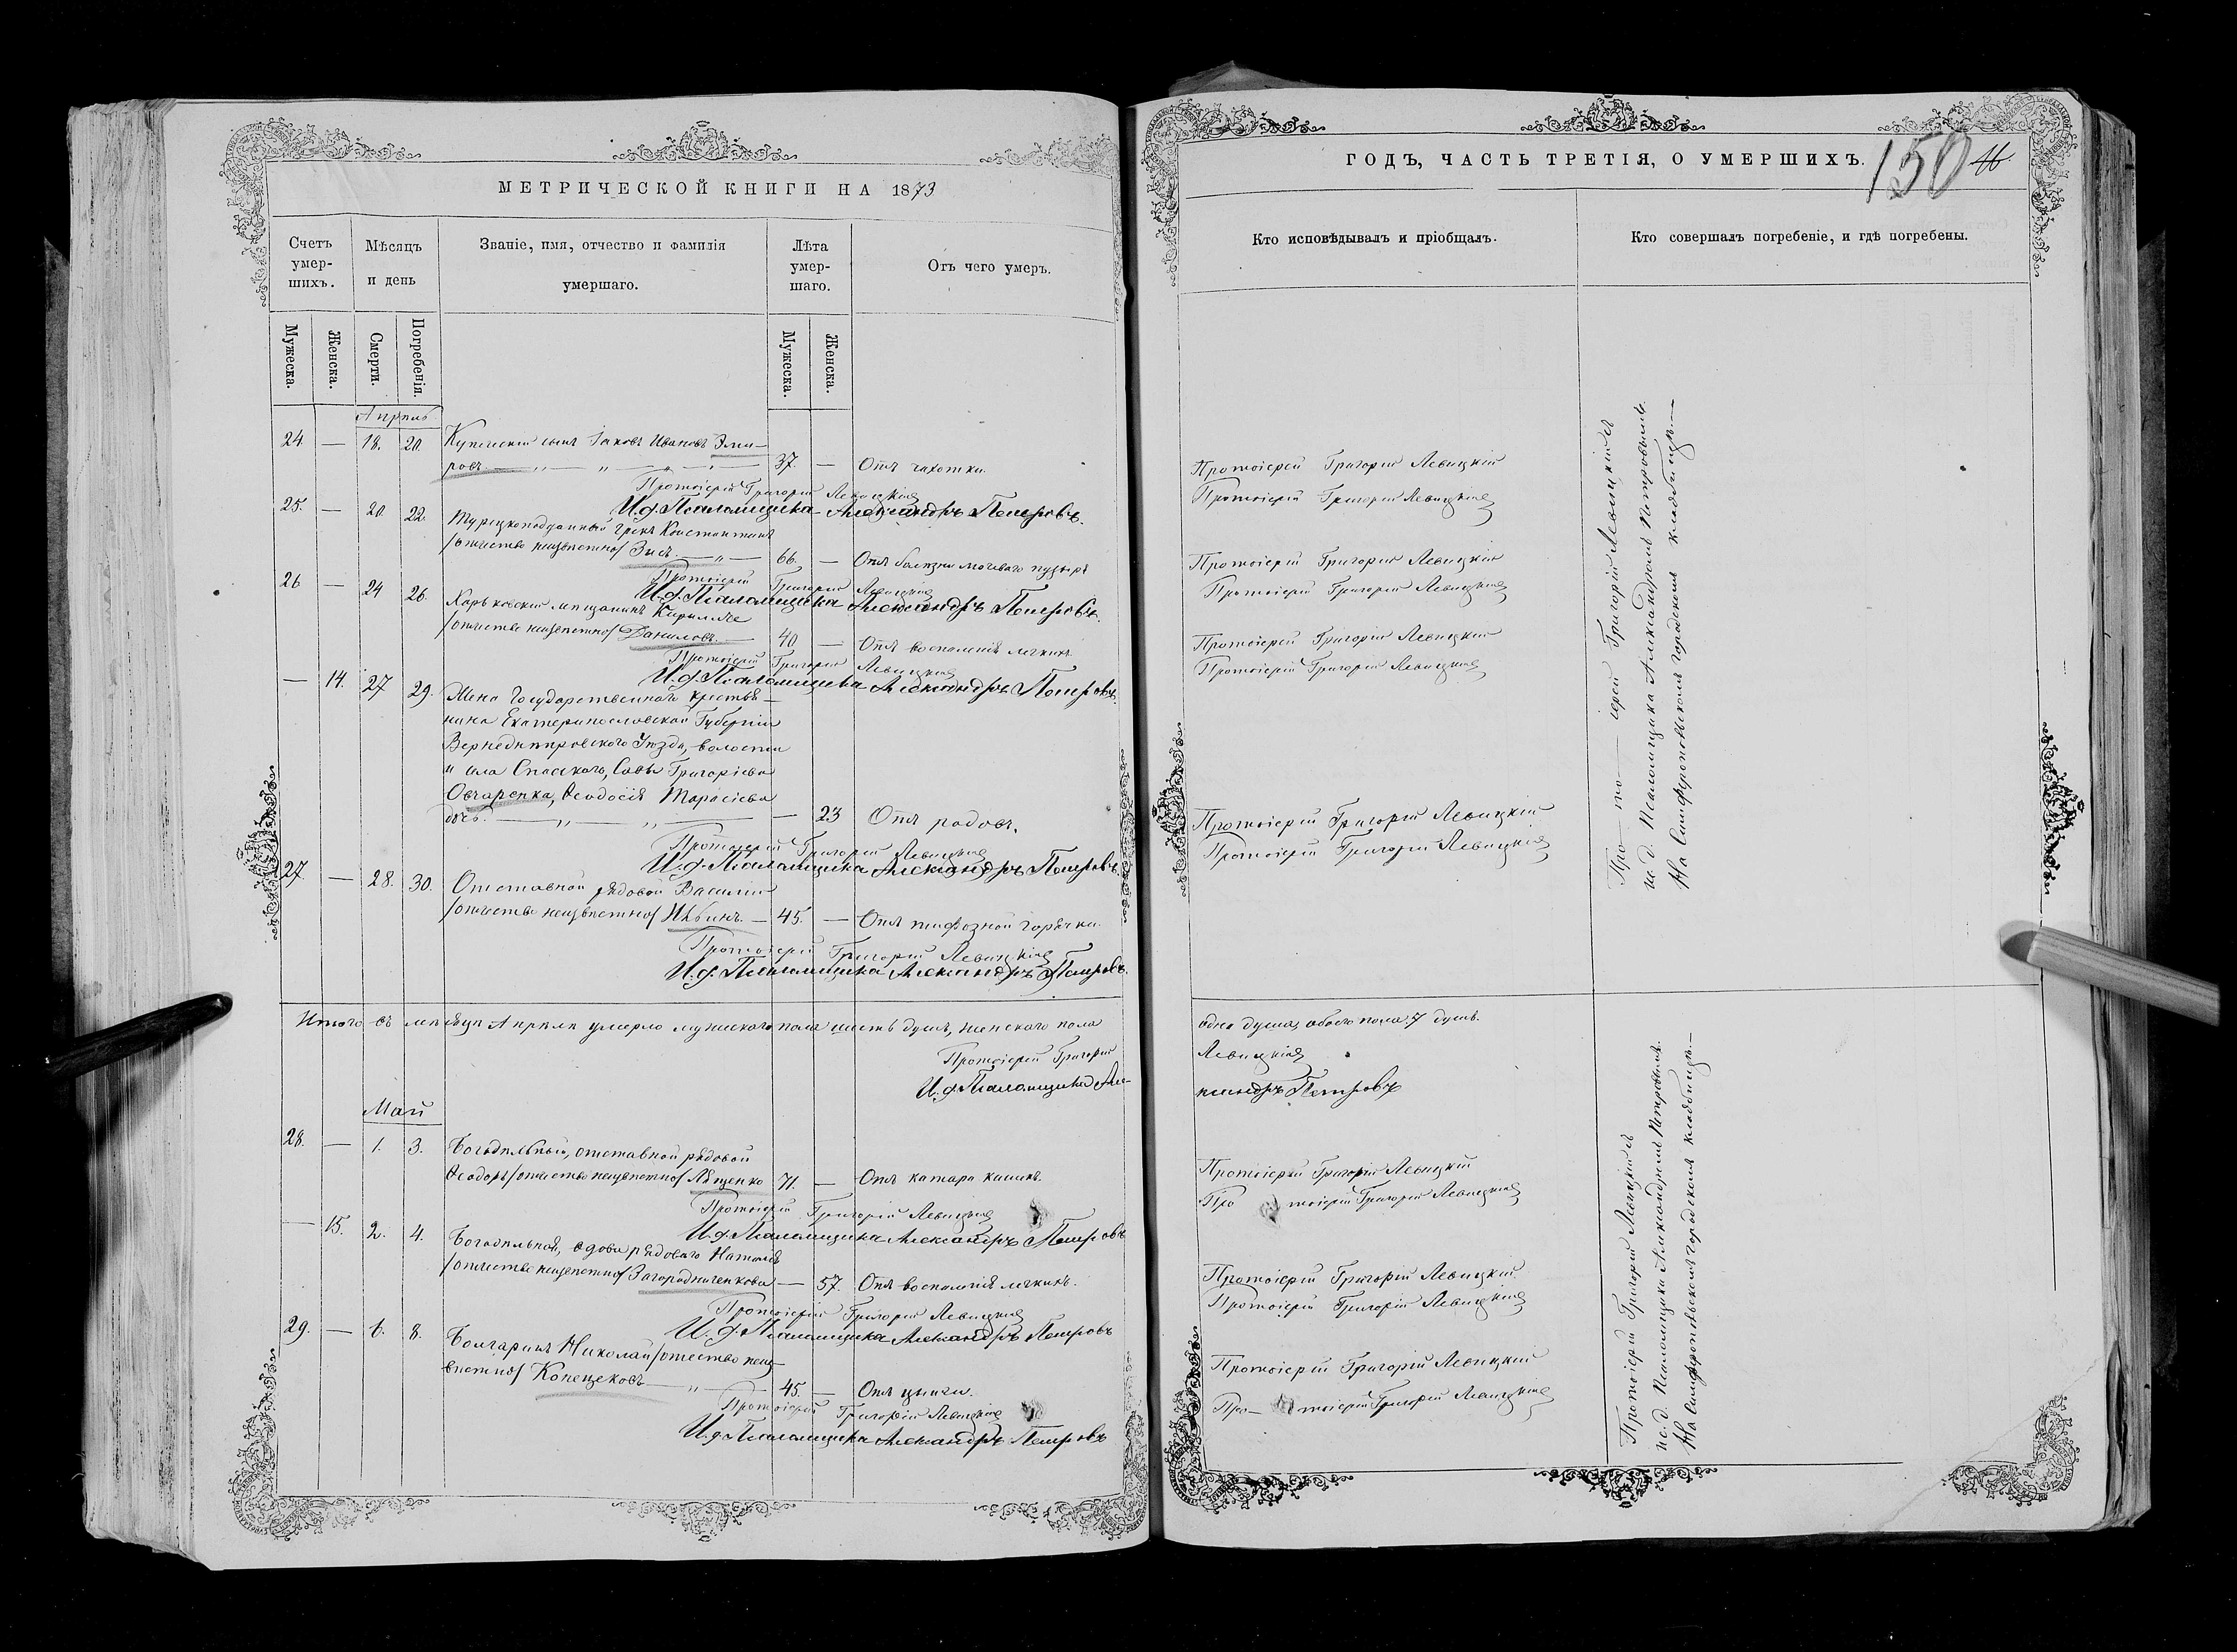 МЕТРИЧЕСКОЙ КНИГИ НА 1873
Счетъ умер-шихъ.
Мѣсяцъ и день
Званіе, имя, отчество и фамилія умершаго.
Лѣта умер-шаго.
Отъ чего умеръ.
Мужеска.
Женска.
Смерти.
Погребенія.
Мужеска.
Женска.
Апрѣль
24. — 18. 20. Купеческій сынъ Іаковъ Ивановъ Эми-
ровъ — 37. — Отъ чахотки.
Протоіерей Григорій Левицкій
И.д. Псаломщика Александръ Петровъ.
25. — 20. 22. Турецкоподданный Грекъ Константинъ
/отчество неизвѣстно/ Зисъ. — 66. — Отъ болѣзни мочеваго пузыря
Протоіерей Григорій Левицкій
И.д. Псаломщика Александръ Петровъ.
26 — 24 26. Харьковскій мѣщанинъ Кириллъ
/отчество неизвѣстно/ Даниловъ. — 40 — Отъ воспаленія легкихъ.
Протоіерей Григорій Левицкій
И.д. Псаломщика Александръ Петровъ.
— 14. 27 29. Жена Государственнаго крестья-
нина Екатеринославской Губерніи
Верхнеднѣпровскаго Уѣзда, волости
и села Спасскаго, Савы Григоріева
Овчаренка, Ѳеодосія Тарасіева
дочь. — — 23 Отъ родовъ.
Протоіерей Григорій Левицкій
И.д. Псаломщика Александръ Петровъ.
27. — 28. 30. Отставной рядовой Василій
/отчество неизвѣстно/ — 45. — Отъ тифозной горячки.
Протоіерей Григорій Левицкій
И.д. Псаломщика Александръ Петровъ.
Итого въ мѣсяцѣ Апрѣлѣ умерло мужескаго пола шесть душъ, женскаго пола
Протоіерей Григорій
И.д. Псаломщика Але-
Май
28. — 1. 3. Богодѣльный, отставной рядовой
Ѳеодоръ /отчество неизвѣстно/ Лященко 71. — Отъ катара кишекъ.
Протоіерей Григорій Левицкій
И.д. Псаломщика Александръ Петровъ
— 15. 2. 4. Богодѣльная, вдова рядоваго Наталія
/отчество неизвѣстно/ Загородниченкова — 57. Отъ воспаленія легкихъ.
Протоіерей Григорій Левицкій
И.д. Псаломщика Александръ Петровъ
29. — 6. 8. Болгаринъ Николай /отчество неиз-
вѣстно/ Копецековъ — 45. — Отъ цынги.
Протоіерей Григорій Левицкій
И.д. Псаломщика Александръ Петровъ
ГОДЪ, ЧАСТЬ ТРЕТІЯ, О УМЕРШИХЪ.
150
Кто исповѣдывалъ и пріобщалъ.
Кто совершалъ погребеніе, и гдѣ погребены.
Протоіерей Григорій Левицкій
Протоіерей Григорій Левицкій
Протоіерей Григорій Левицкій
Протоіерей Григорій Левицкій
Протоіерей Григорій Левицкій
Протоіерей Григорій Левицкій
Протоіерей Григорій Левицкій
Протоіерей Григорій Левицкій
Про — то — іерей Григорій Левицкій съ
и.д. Псаломщика Александромъ Петровымъ.
На Симферопольскомъ городскомъ кладбищѣ. —
одна душа, обоего пола 7 душъ.
Левицкій
ксандръ Петровъ
Протоіерей Григорій Левицкій
Про тоіерей Григорій Левицкій
Протоіерей Григорій Левицкій
Протоіерей Григорій Левицкій
Протоіерей Григорій Левицкій
Про— тоіерей Григорій Левицкій
Протоіерей Григорій Левицкій съ
и.д. Псаломщика Александромъ Петровымъ.
На Симферопольскомъ городскомъ кладбищѣ. —